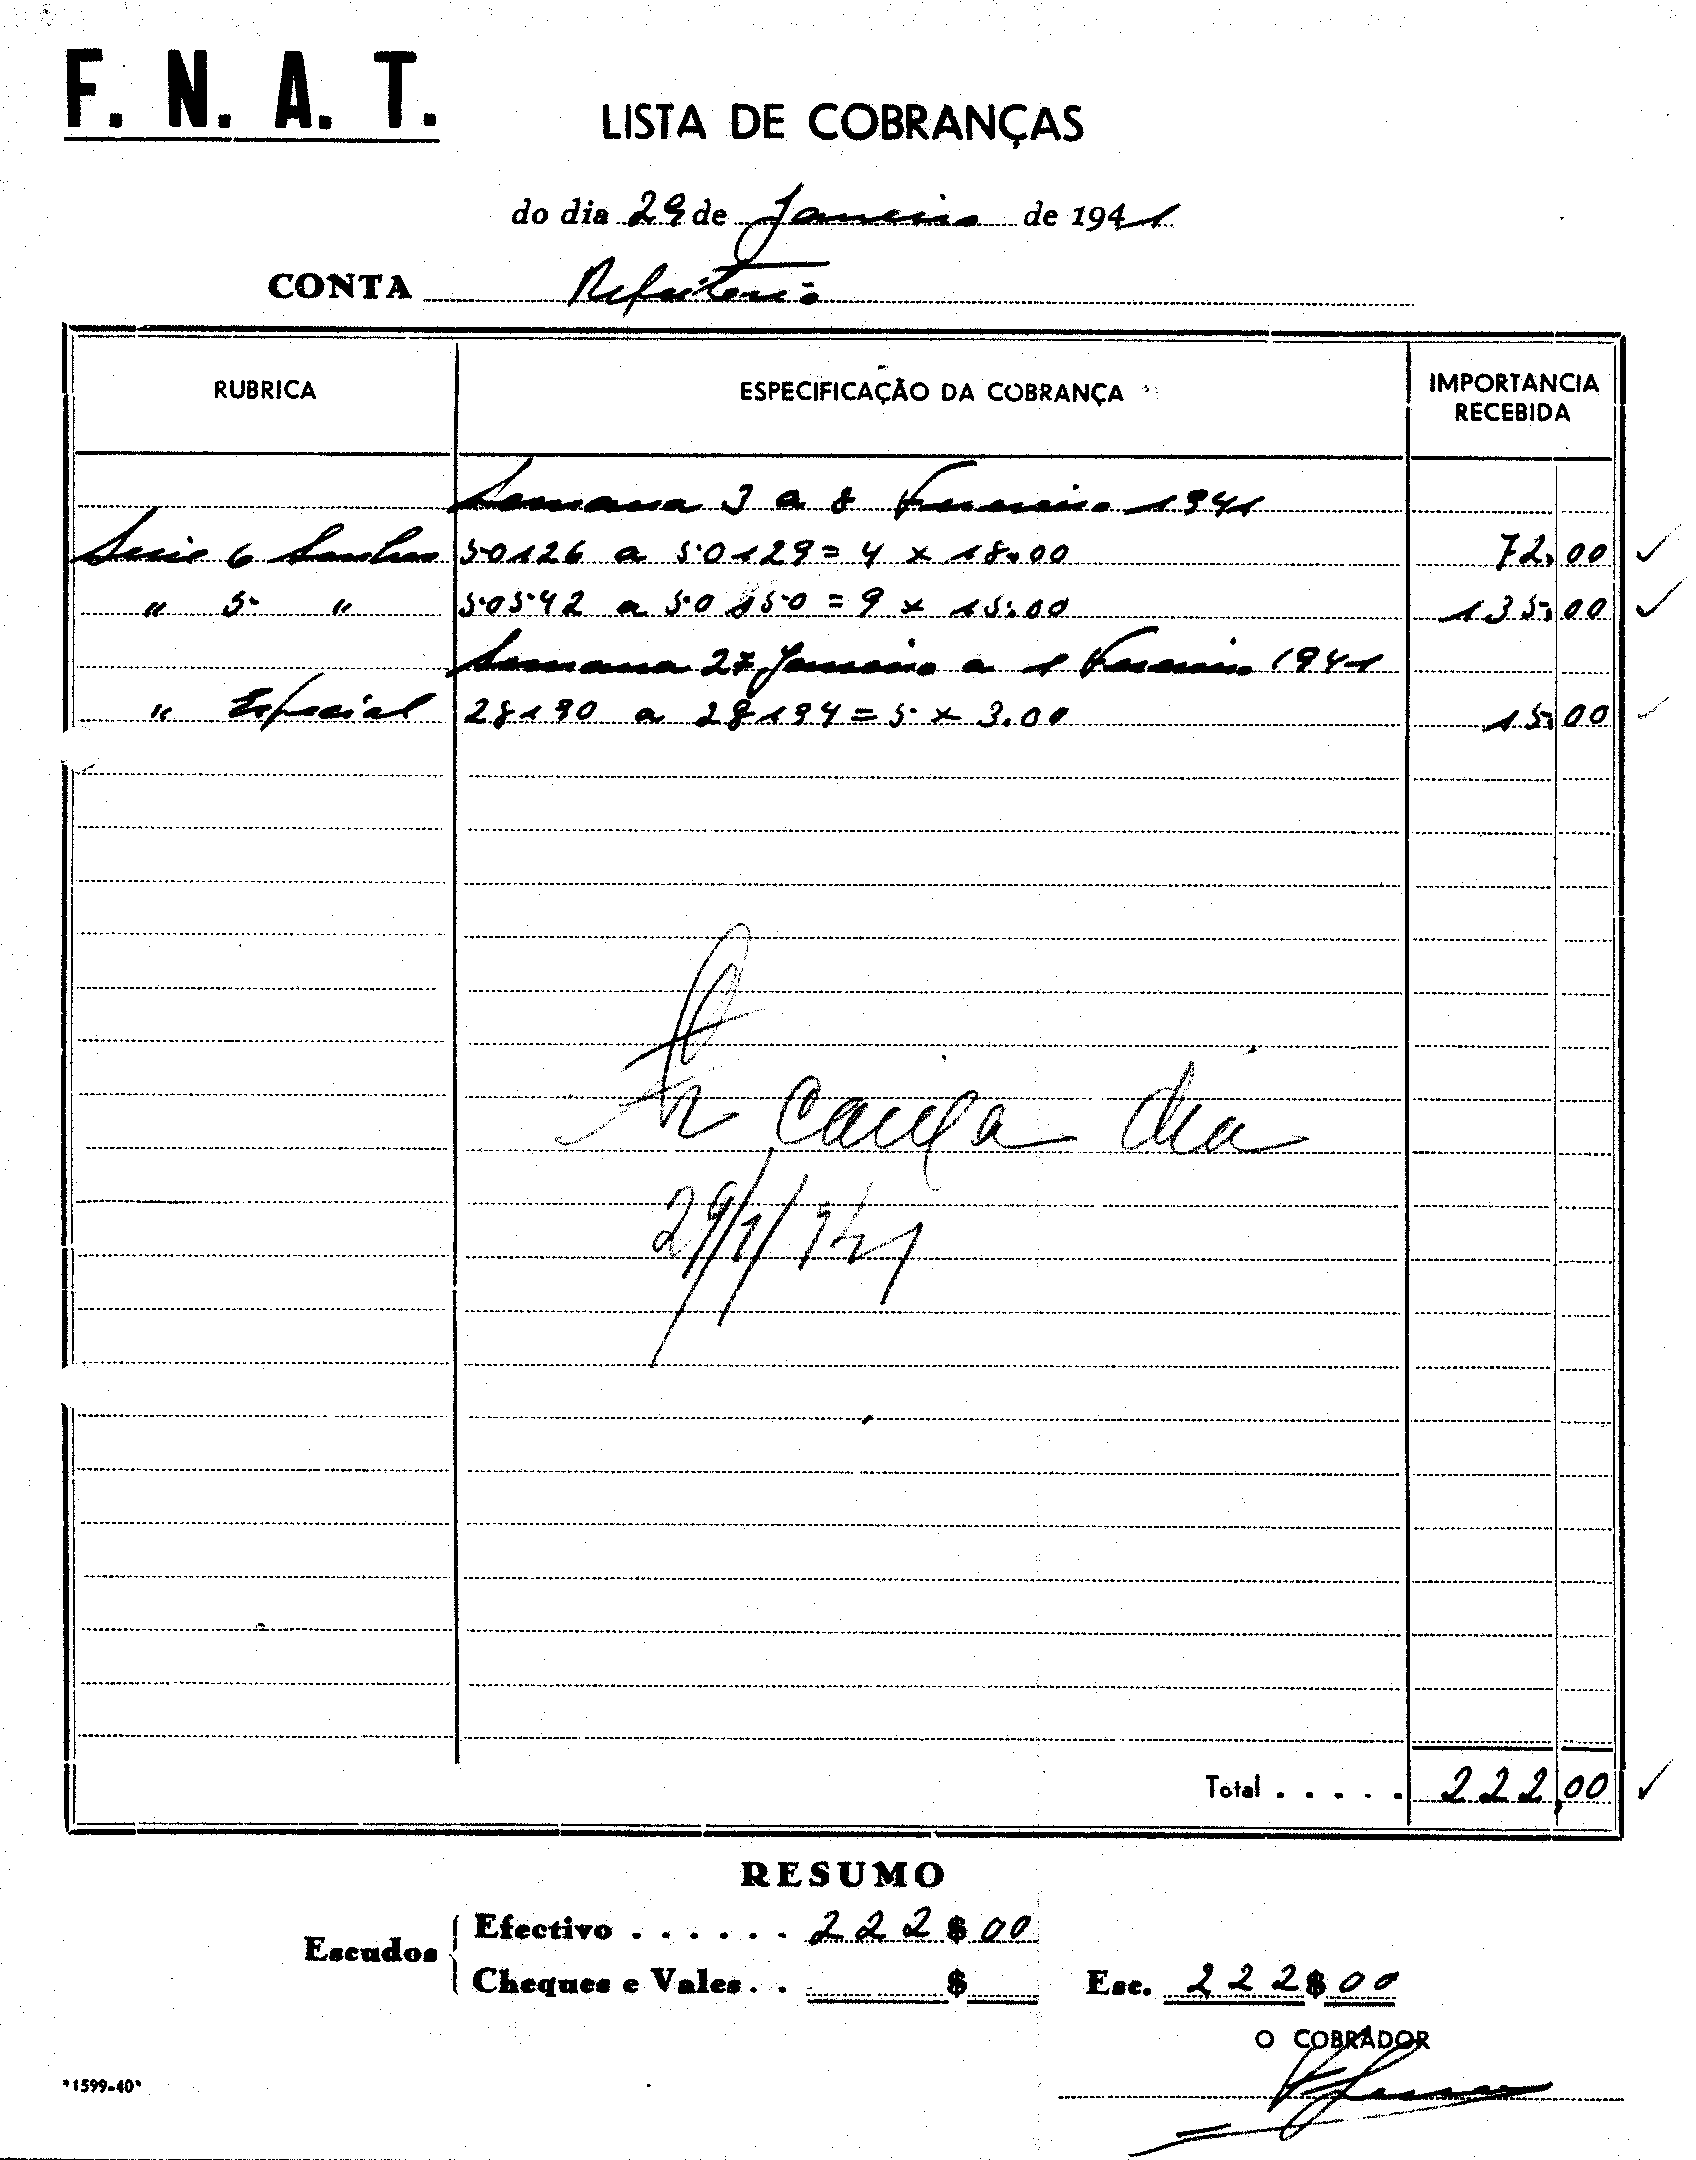 F. N. A. T.
LISTA DE COBRANÇAS
do dia 29 de Janeiro de 1941
CONTA Refeitorio
RUBRICA ESPECIFICAÇÃO DA COBRANÇA IMPORTANCIA RECEBIDA
Semana 3 a 8 Fevereiro 1941
Serie 6 Senhas 50126 a 50129 = 4 x 18.00 72.00
" 5 " 50542 a 50550 = 9 x 15.00 135.00
Semana 27 Janeiro a 1 Fevereiro 1941
" Especial 28190 a 28194 = 5 x 3.00 15.00
caixa dia
29/1/941
Total . . . . . 222,00
RESUMO
Escudos Efectivo . . . . . . 222$00
Cheques e Vales . . $ Esc. 222$00
O COBRADOR
*1599-40*